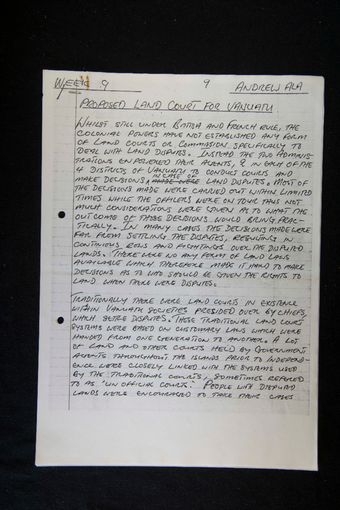 WEEK 9 9 ANDREW ALA
PROPOSED LAND COURT FOR VANUATU
WHILST STILL UNDER BRITISH AND FRENCH RULE, THE
COLONIAL POWERS HAVE NOT ESTABLISHED ANY FORM
OF LAND COURTS OR COMMISSION SPECIFICALLY TO
DEAL WITH LAND DISPUTES. INSTEAD THE TWO ADMINIS-
TRATIONS EMPOWERED THEIR AGENTS, 2 IN EACH OF THE
4 DISTRICTS OF VANUATU TO CONDUCT COURTS AND
IN CASE OF
MAKE DECISIONS, LAND DISPUTES. MOST OF
THE DECISIONS MADE WERE CARRIED OUT WITHIN LIMITED
TIMES WHILE THE OFFICERS WERE ON TOUR THUS NOT
MUCH CONSIDERATIONS WERE GIVEN AS TO WHAT THE
OUTCOME OF THOSE DECISIONS WOULD BRING PRAC-
TICALLY. IN MANY CASES THE DECISIONS MADE WERE
FAR FROM SETTLING THE DISPUTES, RESULTING IN
CONTINUOUS ROWS AND FIGHTINGS OVER THE DISPUTED
LANDS. THERE WERE NO ANY FORM OF LAND LAWS
AVAILABLE WHICH THEREFORE MADE IT HARD TO MAKE
DECISIONS AS TO WHO SHOULD BE GIVEN THE RIGHTS TO
LAND WHEN THERE WERE DISPUTES.
TRADITIONALLY THERE WERE LAND COURTS IN EXISTENCE
WITHIN VANUATU SOCIETIES PRESIDED OVER BY CHIEFS,
WHICH SETTLE DISPUTES. THESE TRADITIONAL LAND COURT
SYSTEMS WERE BASED ON CUSTOMARY LAWS WHICH WERE
HANDED FROM ONE GENERATION TO ANOTHER. A LOT
OF LAND AND OTHER COURTS HELD BY GOVERNMENT
AGENTS THROUGHOUT THE ISLANDS PRIOR TO INDEPEND-
ENCE WERE CLOSELY LINKED WITH THE SYSTEMS USED
BY THE TRADITIONAL COURTS, SOMETIMES REFERRED
TO AS 'UN OFFICIAL COURTS'. PEOPLE WITH DISPUTED
LANDS WERE ENCOURAGED TO TAKE THEIR CASES